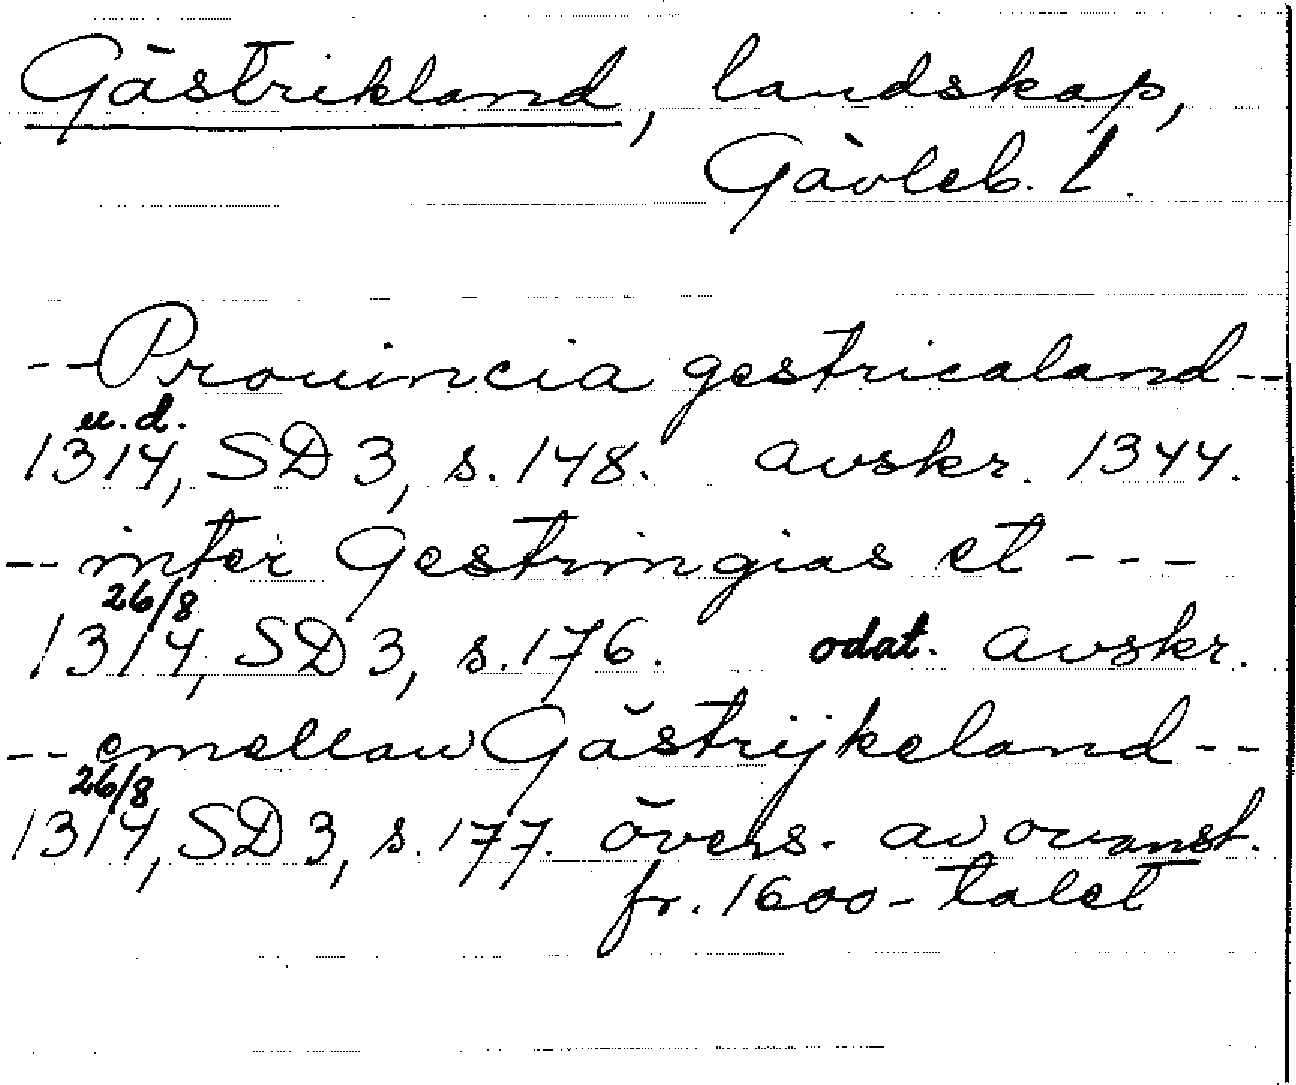 Gästrikland, landskap,
Gävleb. l.
-- Prouincia gestricaland --
u. d.
1314, SD 3, s. 148. avskr. 1344.
-- inter Gestringias et ---
26/8
1314, SD 3, s. 176. odat. avskr.
-- emellan Gästrijkeland --
26/8
1314, SD 3, s. 177. övers. av ovanst.
fr. 1600-talet